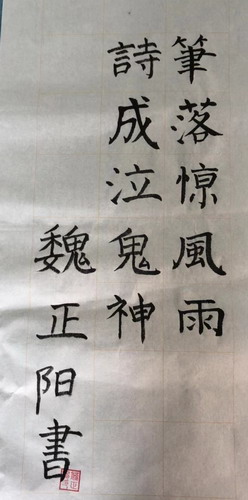 筆落惊風雨
詩成泣鬼神
魏正阳書